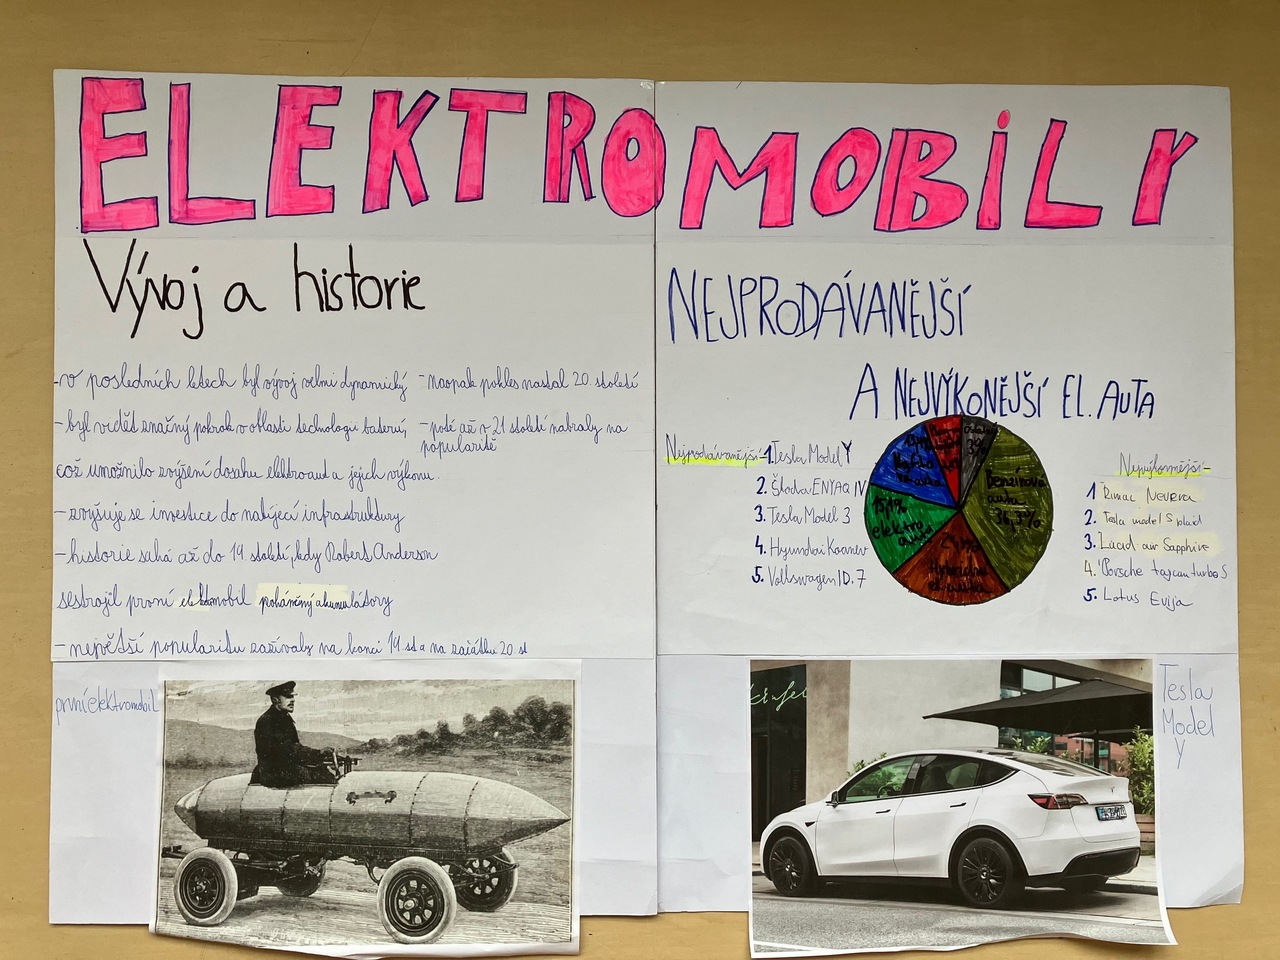 ELEKTROMOBiLY
Vývoj a historie
-v posledních letech byl vývoj velmi dynamický
-byl viděť značný pokrok v oblasti technologii baterií,
což umožnilo zvýšení dosahu elektroaut a jejich výkonu.
-zvyšuje se investice do nabíjecí infrastruktury
-historie sahá až do 19 století, kdy Robert Anderson
sestrojil první elektromobil poháněný akumulátory
-největší popularitu zažívaly na konci 19.st a na začátku 20.st
-naopak pokles nastal 20 století
-poté až v 21 století nabraly na
popularitě
první elektromobil
NEJPRODÁVANĚJŠÍ
A NEJVÝKONĚJŠÍ EL. AUTA
Nejprodávanější-
1. Tesla Model Y
2. Škoda ENYAQ IV
3. Tesla Model 3
4. Hyundai
5. Volkswagen ID.7
3%
Benzínová
auta
36,3%
Hybridní
elektro
auta
Nejvýkonnější-
1 Rimac Nevera
2. Tesla model S plaid
3. Lucid air Sapphire
4. Porsche taycan turbo S
5. Lotus Evija
Tesla
Model
Y